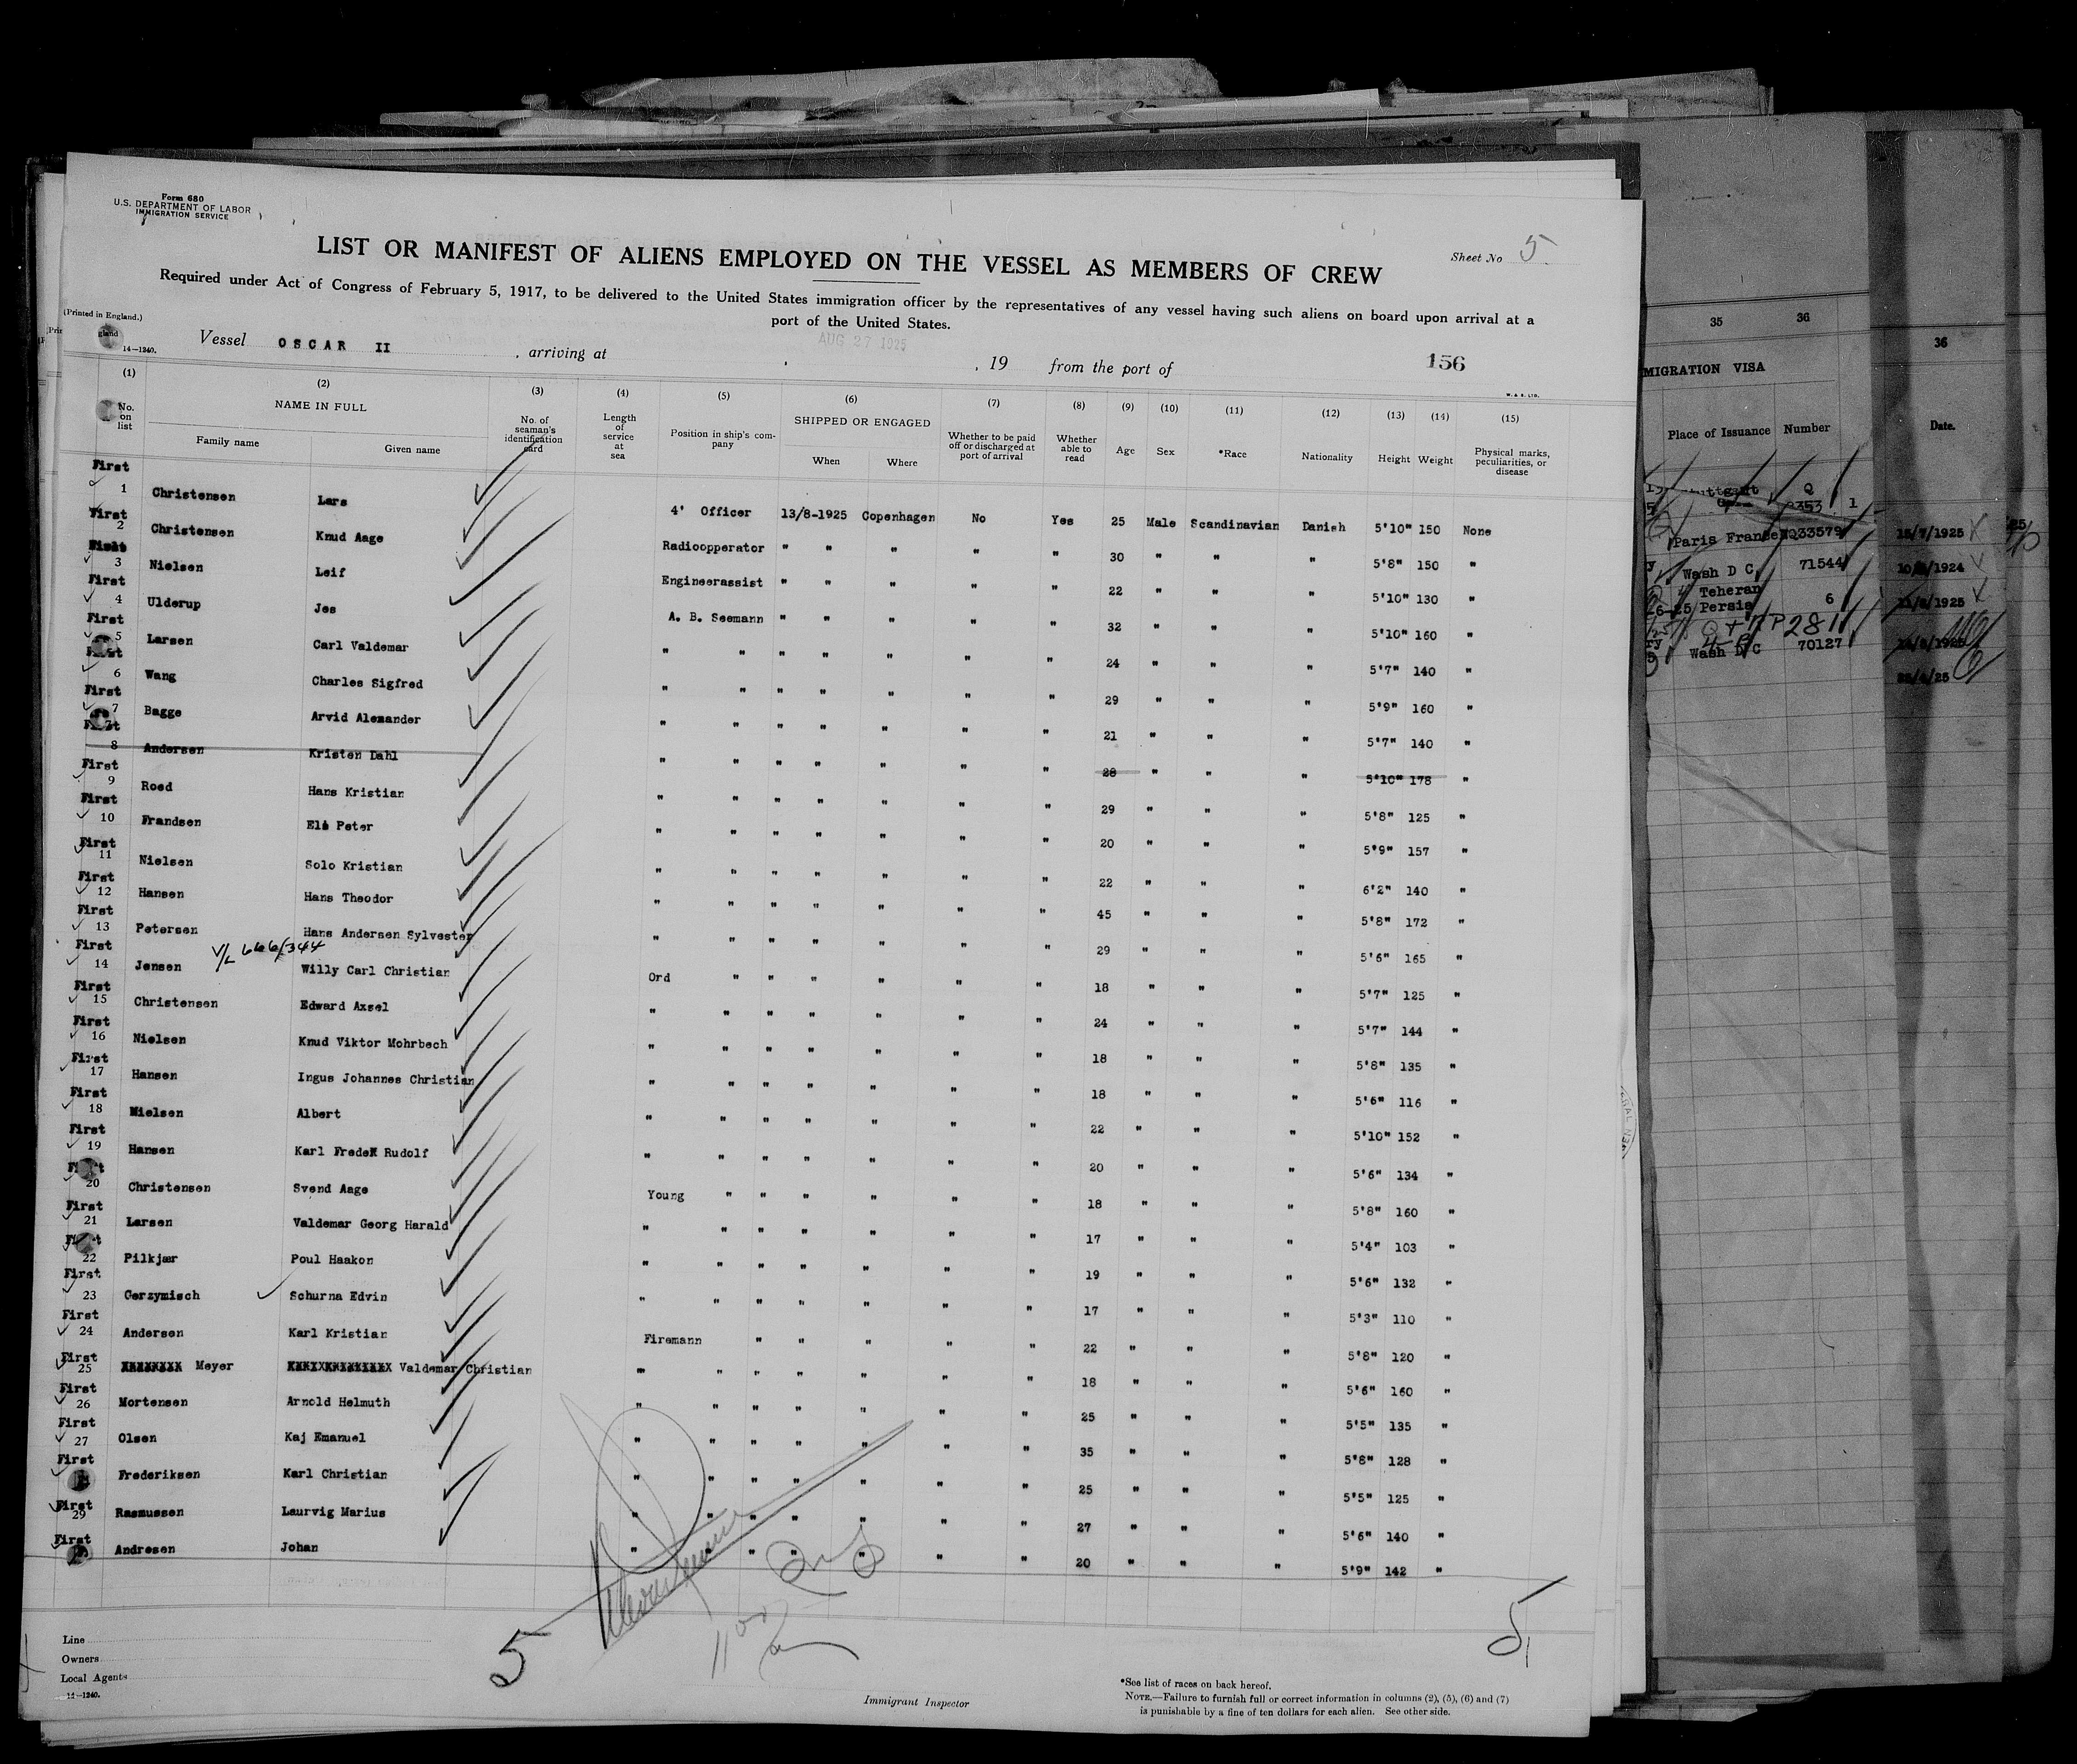 Form 680
U.S. DEPARTMENT OF LABOR
IMMIGRATION SERVICE
LIST OR MANIFEST OF ALIENS EMPLOYED ON THE VESSEL AS MEMBERS OF CREW
Sheet No 5
Required under Act of Congress of February 5, 1917, to be delivered to the United States immigration officer by the representatives of any vessel having such aliens on board upon arrival at a
port of the United States.
(Printed in England.)
14—1240.
Vessel OSCAR II , arriving at AUG 27 1925 , 19 from the port of 156
W. & S. LTD.
(1) (2) (3) (4) (5) (6) (7) (8) (9) (10) (11) (12) (13) (14) (15)
No. on list NAME IN FULL Family name Given name No. of seaman's identification card Length of service at sea Position in ship's company SHIPPED OR ENGAGED When Where Whether to be paid off or discharged at port of arrival Whether able to read Age Sex *Race Nationality Height Weight Physical marks, peculiarities, or disease
First 1 Christensen Lars 4' Officer 13/8-1925 Copenhagen No Yes 25 Male Scandinavian Danish 5'10" 150 None
First 2 Christensen Knud Aage Radioopperator " " " " " 30 " " " 5'8" 150 "
First 3 Nielsen Leif Engineerassist " " " " " 22 " " " 5'10" 130 "
First 4 Ulderup Jes A. B. Seemann " " " " " 32 " " " 5'10" 160 "
First 5 Larsen Carl Valdemar " " " " " " " 24 " " " 5'7" 140 "
First 6 Wang Charles Sigfred " " " " " " " 29 " " " 5'9" 160 "
First 7 Bagge Arvid Alexander " " " " " " " 21 " " " 5'7" 140 "
First 8 Andersen Kristen Dahl " " " " " " " 28 " " " 5'10" 178 "
First 9 Roed Hans Kristian " " " " " " " 29 " " " 5'8" 125 "
First 10 Frandsen Peter " " " " " " " 20 " " " 5'9" 157 "
First 11 Nielsen Solo Kristian " " " " " " " 22 " " " 6'2" 140 "
First 12 Hansen Hans Theodor " " " " " " " 45 " " " 5'8" 172 "
First 13 Petersen Hans Andersen Sylvester " " " " " " " 29 " " " 5'6" 165 "
V/L 666/344
First 14 Jensen Willy Carl Christian Ord " " " " " " 18 " " " 5'7" 125 "
First 15 Christensen Edward Axsel " " " " " " " 24 " " " 5'7" 144 "
First 16 Nielsen Knud Viktor Mohrbech " " " " " " " 18 " " " 5'8" 135 "
First 17 Hansen Ingus Johannes Christian " " " " " " " 18 " " " 5'6" 116 "
First 18 Nielsen Albert " " " " " " " 22 " " " 5'10" 152 "
First 19 Hansen Karl Fredek Rudolf " " " " " " " 20 " " " 5'6" 134 "
First 20 Christensen Svend Aage Young " " " " " " 18 " " " 5'8" 160 "
First 21 Larsen Valdemar Georg Harald " " " " " " " 17 " " " 5'4" 103 "
First 22 Pilkjær Poul Haakon " " " " " " " 19 " " " 5'6" 132 "
First 23 Gerzymisch Schurna Edvin " " " " " " " 17 " " " 5'3" 110 "
First 24 Andersen Karl Kristian Firemann " " " " " 22 " " " 5'8" 120 "
First 25 Meyer Valdemar Christian " " " " " " " 18 " " " 5'6" 160 "
First 26 Mortensen Arnold Helmuth " " " " " " " 25 " " " 5'5" 135 "
First 27 Olsen Kaj Emanuel " " " " " " " 35 " " " 5'8" 128 "
First Frederiksen Karl Christian " " " " " " " 25 " " " 5'5" 125 "
First 29 Rasmussen Laurvig Marius " " " " " " " 27 " " " 5'6" 140 "
First Andresen Johan " " " " " " " 20 " " " 5'9" 142 "
5
5
Line
Owners
Local Agents
14—1240.
Immigrant Inspector
*See list of races on back hereof.
NOTE.—Failure to furnish full or correct information in columns (2), (5), (6) and (7)
is punishable by a fine of ten dollars for each alien. See other side.
35 36
36
MIGRATION VISA
Place of Issuance Number
Date.
Paris France 33579
15/7/1925
Wash D C 71544
Teheran
Persia 6
2811
Wash D C 70127